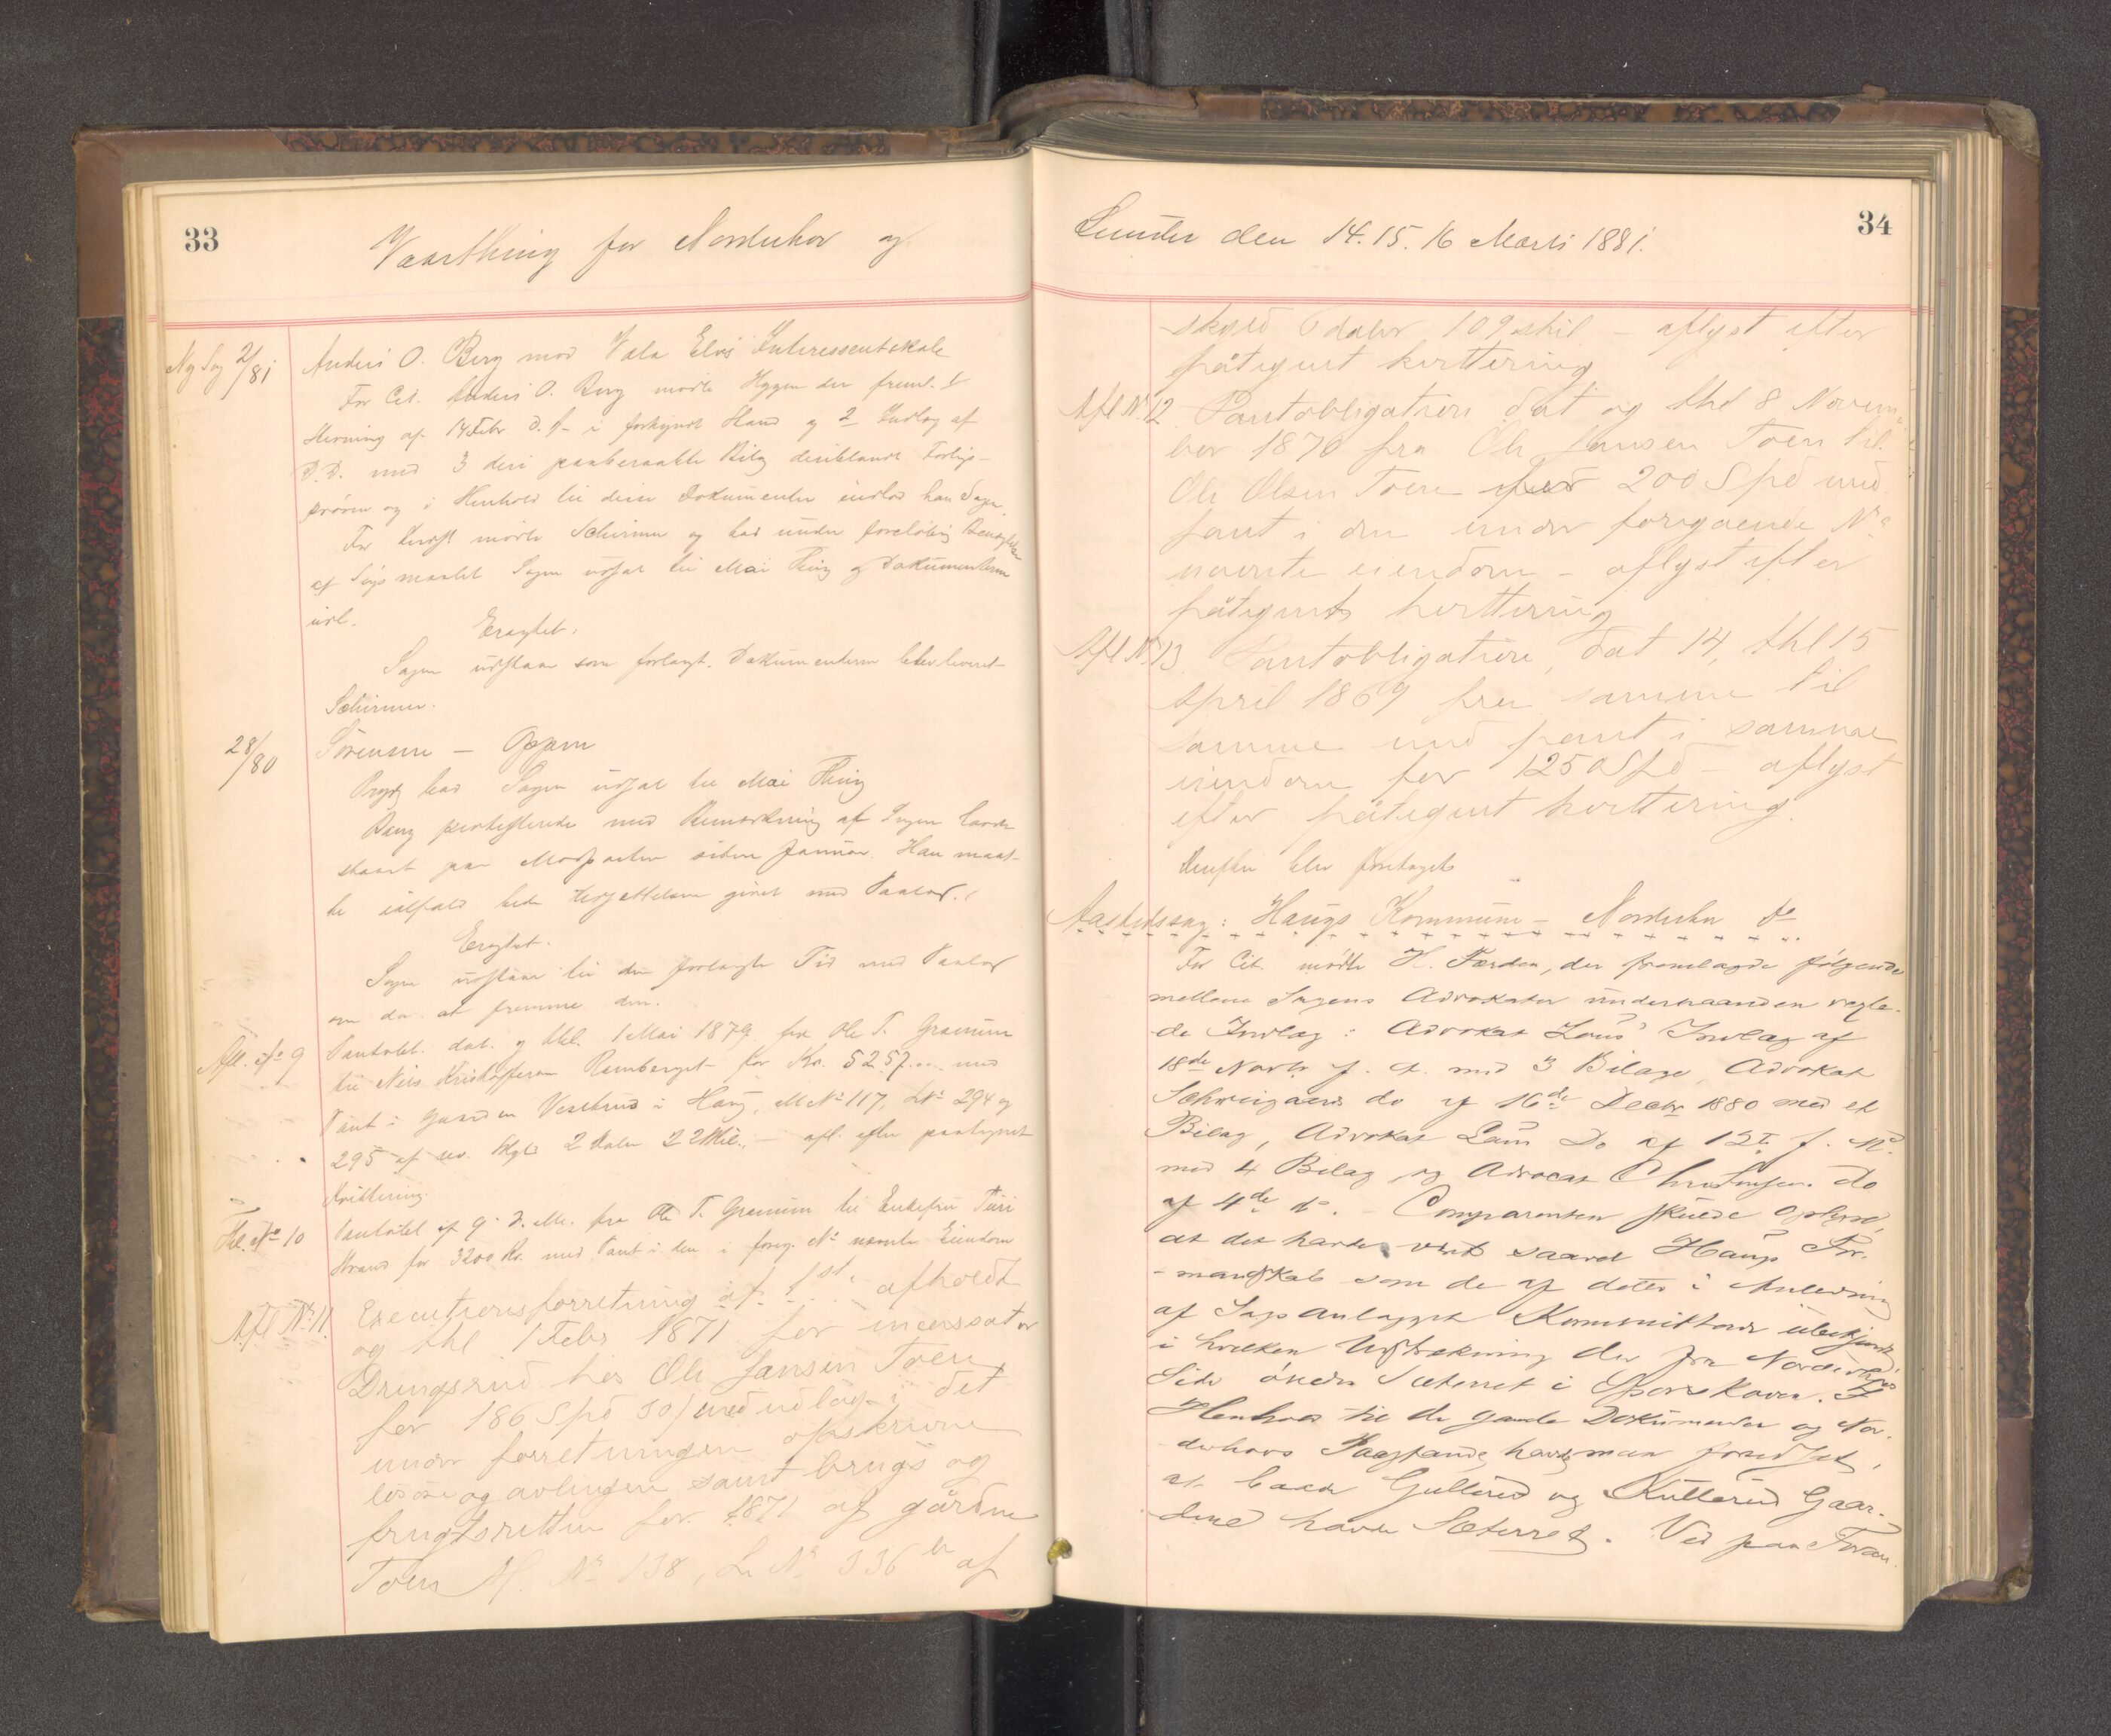 33
Vaarthing for Norderhov og
Ny Sag 2/81
Anders O. Berg mod Væla Elvs Interessentskab
For Cit. Anders O. Berg mødte Hyggen der freml.
Stevning af 14 Febr d. A. i forkyndt Stand og 2 Indlæg af
D.D. med 3 deri paaberaabte Bilag deriblandt Forligs-
prøven og i Henhold til disse Dokumenter indlod han Sagen.
For Indst mødte Schirmer og bad under foreløbig Benægtelse
af Søgsmaalet Sagen udsat til Mai Thing og Dokumenterne
udl.
Eragtet:
Sagen udstaar som forlangt. Dokumenterne blev leveret
Schirmer.
28/80
Sørensen – Oppen
bad Sagen udsat til Mai Thing
Berg protesterede med Bemærkning af Sagen havde
staaet paa Modparten siden Januar. Han maat-
te ialfald bede Udsættelsen givet med Paalæg.
Eragtet.
Sagen udstaar til den forlangte Tid med Paalæg
om da at fremme den.
Afl. No 9
Pantobl. dat. og thl. 1 Mai 1879 fra Ole T. Gramum
til Niels Kristoffersen Ramberget for Kr. 5257... med
Pant i Gaarden Vestbrud i Haug, M No 117, LNo 294 og
295 af rev. Skyld 2 Daler 22 Skil. – afl. efter paategnet
Kvittering.
Afl. No 10
Pantobl af 9 d. M. fra Ole T. Gramum til Enkefru Turi
Strand for 3200 Kr. med Pant i den i foreg. No nævnte Eiendom
Afl No 11
Executionsforretning af 1st afholdt
og thl 1 Febr 1871 for incassator
Dringsrud hos Ole Jansen Toen
for 186 Spd 50/ med udlæg i det
under forretningen opskrevne
løsøre og avlingen samt brugs og
frugtsretten for 1871 af gården
Toen M. No 138, L No 336 b af
34
Lunder den 14. 15. 16 Marts 1881.
skyld 6 daler 109 skil – aflyst efter
påtegnet kvittering
Afl No 12
Pantobligation dat og thl 8 Novem-
ber 1870 fra Ole Jansen Toen til
Ole Olsen Toen for 200 Spd med
pant i den under foregaaende No
nævnte eiendom – aflyst efter
påtegnet kvittering
Afl No 13
Pantobligation, dat 14, thl 15
April 1869 fra samme til
samme med pant i samme
eiendom for 1250 Spd – aflyst
efter påtegnet kvittering.
Derefter blev foretaget
Aastedssag: Haugs Kommune – Norderhov do
For Cit. mødte H. Færden, der fremlagde følgende
mellem Sagens Advokater underhaanden vexle-
de Indlæg: Advokat Lous' Indlæg af
18de Novbr f. A. med 3 Bilage, Advokat
Schweigaards do af 16de Decbr 1880 med et
Bilag, Advokat Lous do af 12te f. Md.
med 4 Bilag og Advocat do
af 4de ds. – Comparenten skulde oplyse,
at det havde vært saavel Haugs For-
mandskab som de af dette i Anledning
af Saganlægget Kommitterede ubekjendt
i hvilken Udstrækning der fra Norderhovs
Side øvedes Sæterret i Skoven. I
Henhold til de gamle Dokumenter og Nor-
derhovs Paastande havde man forudsat,
at baade Gullerud og Kullerud Gaar-
dene havde Sæterret. Ved paa Foran-